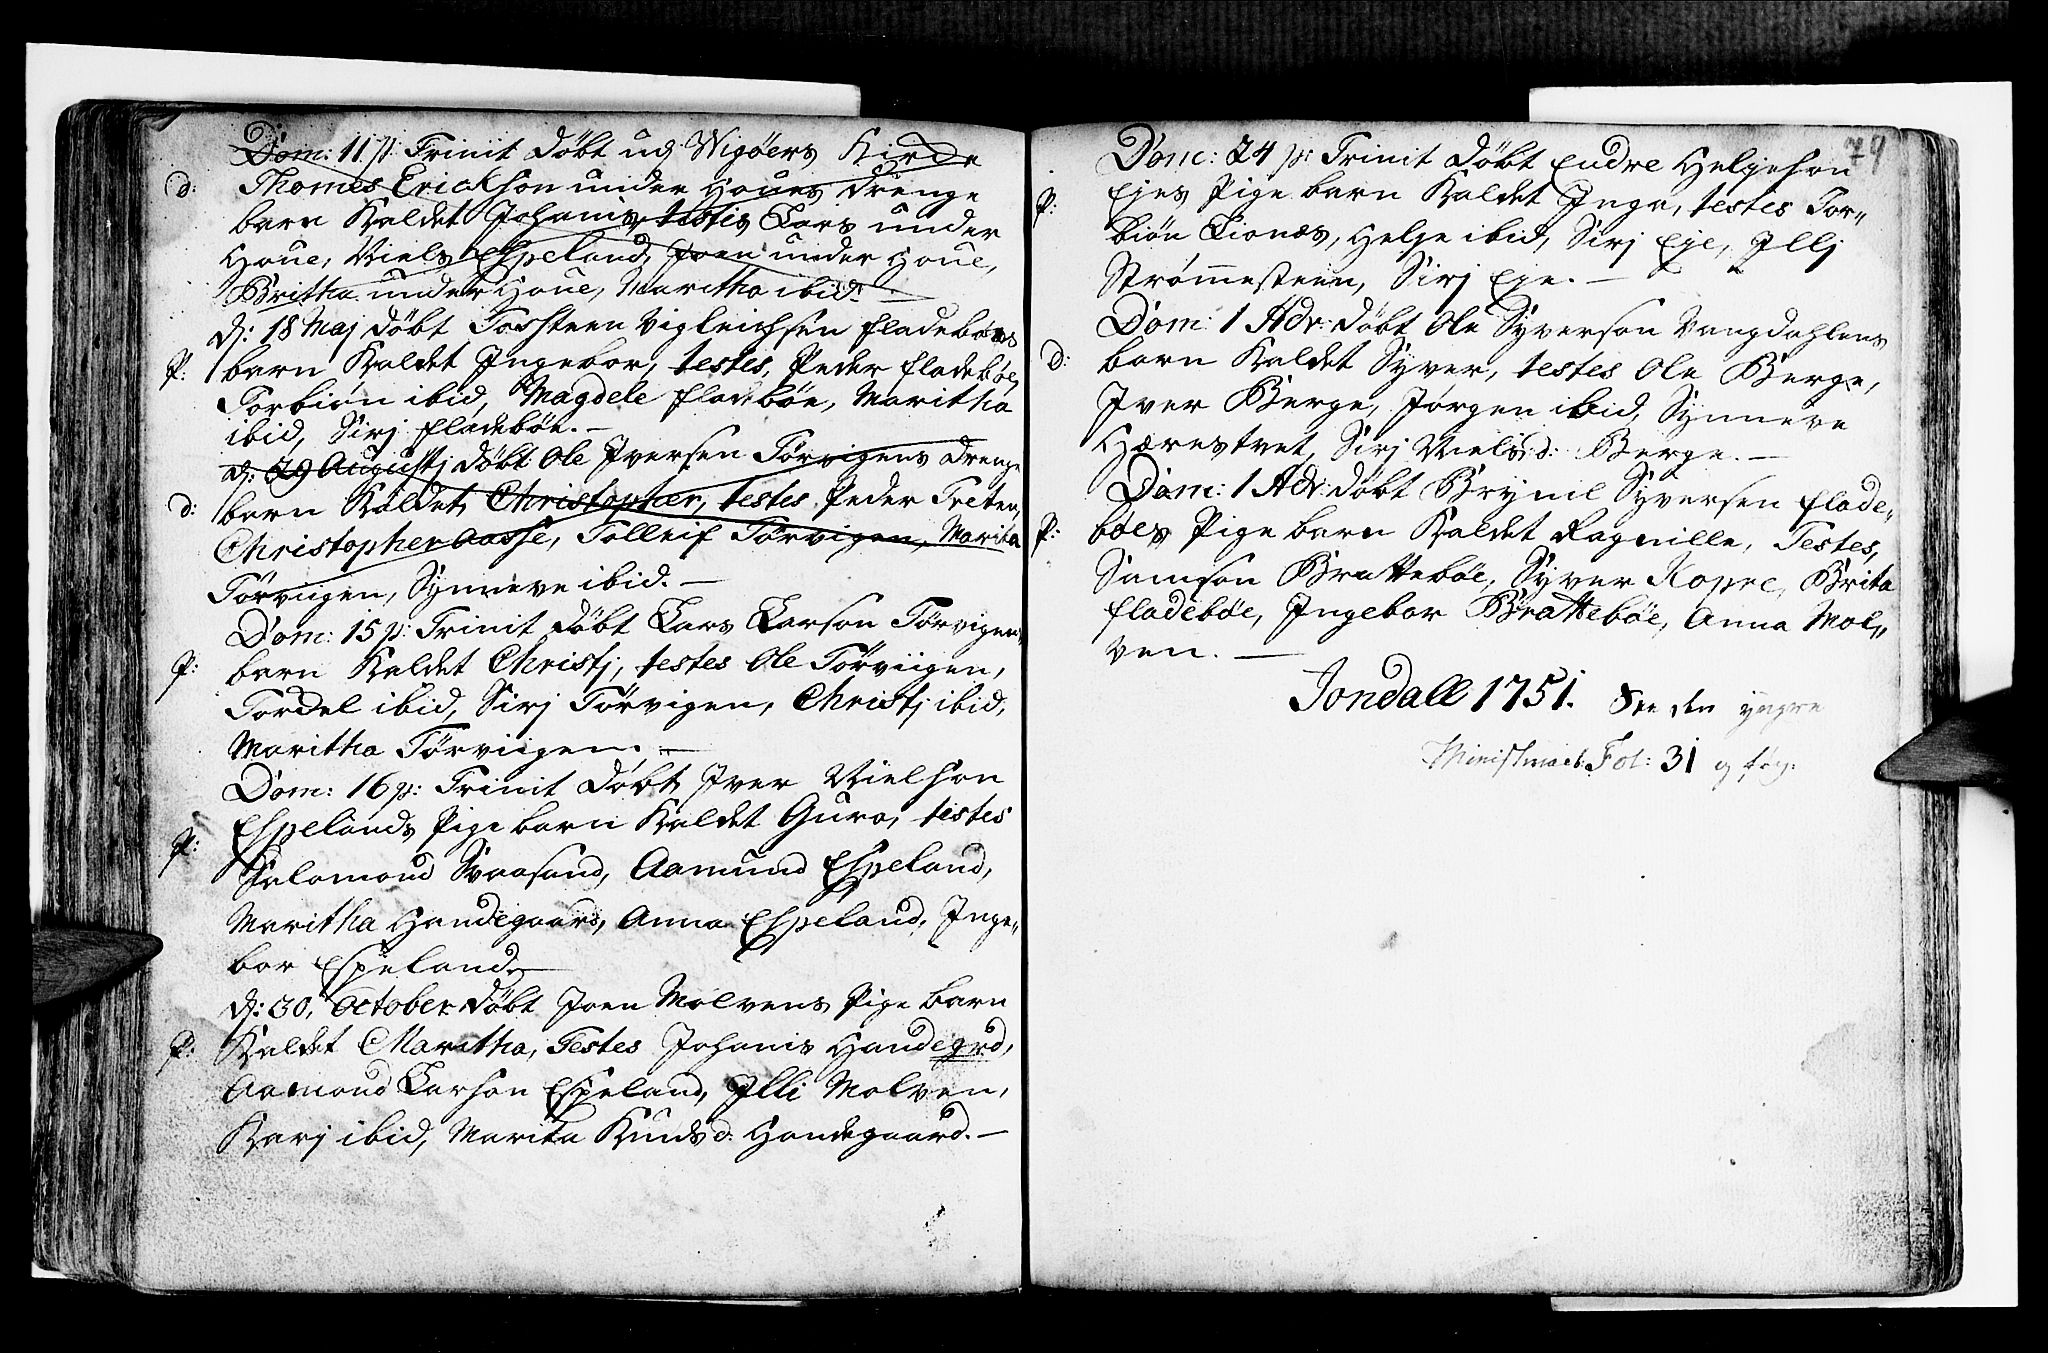 Dom: 11 p: Trinit døbt ud Wigøers Kirche
d: Thomes Erickson under Houes drenge
barn Kaldet Johanis, testis Lars under
Houe, Niels Espeland, Joen under Houe,
Britha under Houe, Maritha ibid. —
d: 18 Maj døbt Torsteen Vigleichsen fladebøes
P: barn Kaldet Ingebor, testes, Peder fladebøe,
Torbiøn ibid, Magdele fladebøe, Maritha
ibid, Sirj fladebøe. —
d: 29 Augustj døbt Ole Iversen Törvigens drenge
d: barn Kaldet Christopher, testes Peder Treten,
Christopher Aasse, Tolleif Törvigen, Marita
Törviigen, Synneve ibid. —
Dom: 15 p: Trinit døbt Lars Larson Törvigens
P: barn Kaldet Christj, testes Ole Törviigen,
Tordel ibid, Sirj Törvigen, Christj ibid,
Maritha Törviigen. —
Dom: 16 p: Trinit døbt Iver Nielson
Espelands Pige barn Kaldet Guro, testes
P: Salomond Svaasand, Aamund Espeland,
Maritha Handegaard, Anna Espeland, Inge„
bor Espeland. —
d: 30, October døbt Joen Molvens Pige barn
P: Kaldet Maritha, Testes Johanis Handegrd,
Aamond Larson Espeland, Illi Molven,
Karj ibid, Marita Knudsd: Handegaard. —
79
Dom: 24 p: Trinit døbt Endre Helgeson
P: Ejes Pige barn Kaldet Inga, testes Tor„
biön Lionæs, Helge ibid, Sirj Eje, Illj
Strømesteen, Sirj Eje. —
Dom: 1 Adv: døbt Ole Syverson Vangdahlens
d: barn Kaldet Syver, testes Ole Berge,
Iver Berge, Jörgen ibid, Synneve
Hærestvet, Sirj Nielsd: Berge. —
Dom: 1 Adv: døbt Brynil Syversen flade„
P: bøes Pige barn Kaldet Ragnille, Testes,
Samson Brattebøe, Syver Kopre, Brita
fladebøe, Ingebor Brattebøe, Anna Mol„
ven. —
Jondall 1751. See den yngre
Ministerialb: Fol: 31 og følg: